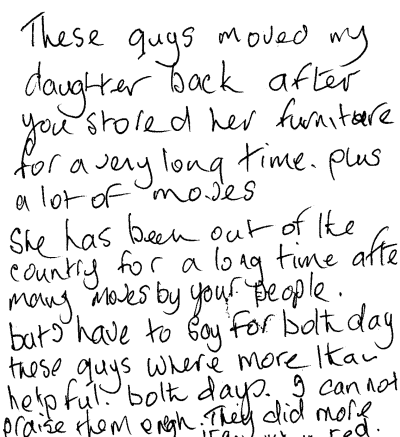 These guys moved my
daughter back after
you stored her furniture
for a very long time. plus
a lot of moves
She has been out of the
country for a long time afte
many moves by your people.
but I have to say for both day
these guys where more than
helpful. both days. I can not
praise them engh. They did more